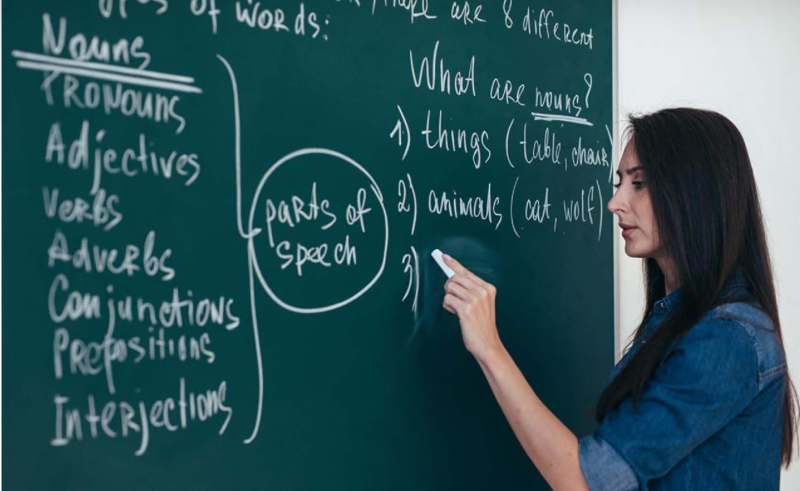 of words:
Nouns
Pronouns
Adjectives
Verbs
Adverbs
Conjunctions
Prepositions
Interjections
parts of
speech
there are 8 different
What are nouns?
1) things (table, chair)
2) animals (cat, wolf)
3)